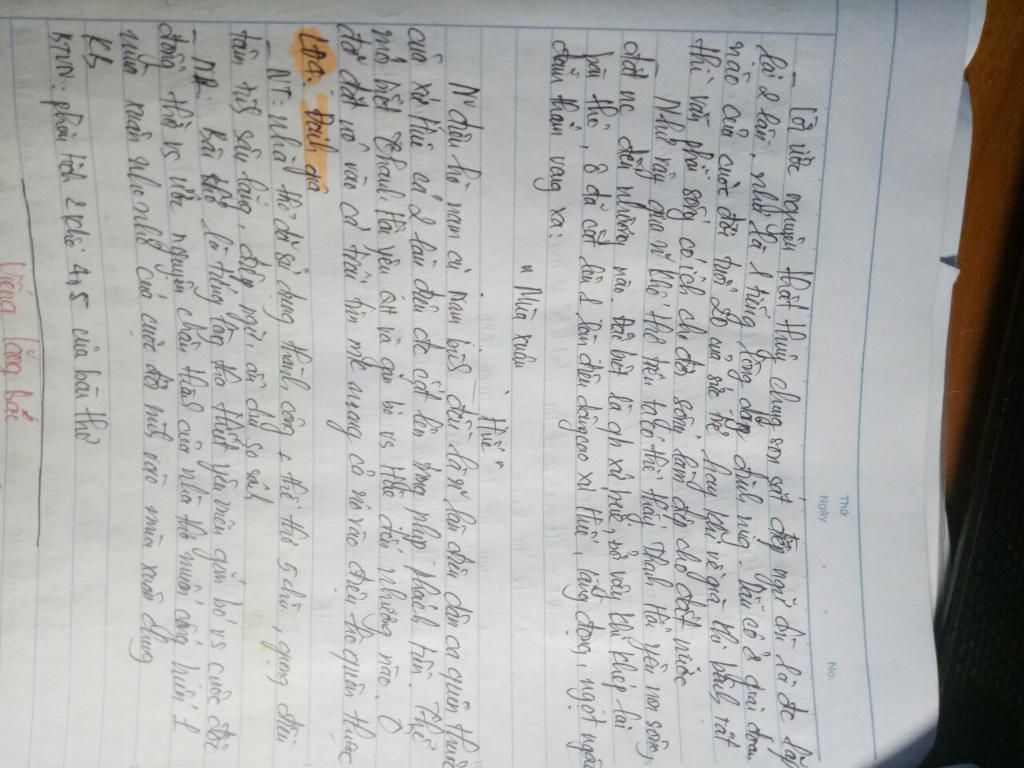 Thứ
Ngày
No.
- Lời ước nguyện thật thủy chung son sắt điệp ngữ dù là đc lấy
lại 2 lần, như là 1 tiếng lòng dặn đinh ninh. Dẫu có ở giai đoạn
nào của cuộc đời tuổi 20 của sức trẻ hay khi về già thì mình
thì vẫn phải sống có ích cho đời, sống làm đẹp cho đất nước
Như vậy qua vs khổ thơ trên ta có thể thấy Thanh Hải yêu cs
đất nc đến nhường nào. Đb biết là ông xứ Huế, bởi vậy khi khép lại
bài thơ, ô đã cất lên 1 làn điệu dâng cao xứ Huế, lắng đọng, ngọt ngào
đằm thắm vang xa:
" Mùa xuân
Huế "
Nx điệu hò nam ai nam bình đều là n~ làn điệu dân ca quen thuộc
của xứ Huế cả 2 làn điệu đc cất lên trong nhịp phách tiền. Thế
mới biết Thanh Hải yêu và gắn bó vs Huế đến nhường nào. Ô
để đất nc vào cả trái tim mênh mang cả nó vào điệu hò quen thuộc
LĐ4: Đánh giá
- NT: nhà thơ đã sử dụng thành công thể thơ 5 chữ, giọng điệu
tâm tình sâu lắng, điệp ngữ, ẩn dụ so sánh
- ND: Bài thơ là tiếng lòng tha thiết yêu mến gắn bó vs cuộc đời
đồng thời vs ước nguyện chân thành của nhà thơ muốn cống hiến 1
mùa xuân nho nhỏ của cuộc đời mình vào mùa xuân chung
KB
BTVN: phân tích 2 khổ 4,5 của bài thơ
Viếng lăng Bác